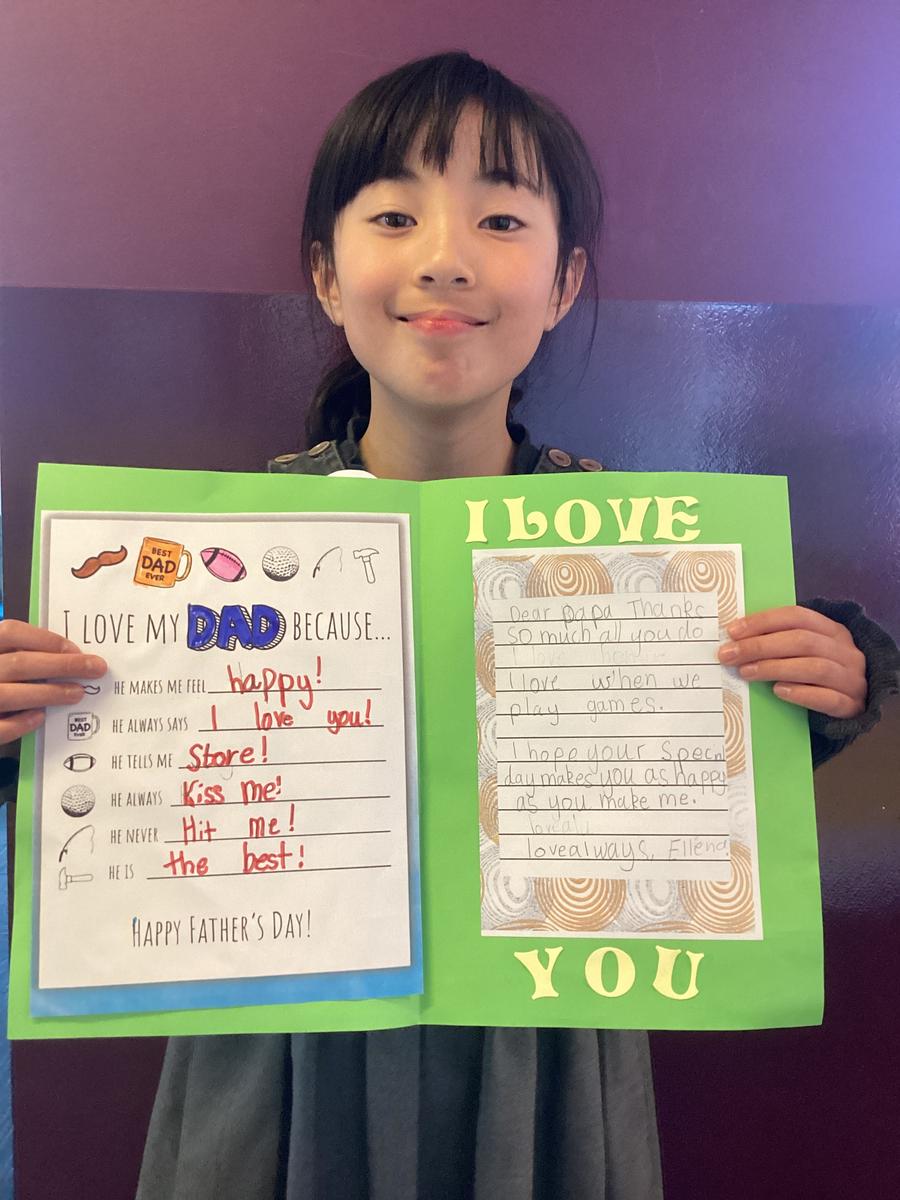 BEST
DAD
EVER
I LOVE MY DAD BECAUSE...
HE MAKES ME FEEL happy!
BEST
DAD
EVER
HE ALWAYS SAYS I love you!
HE TELLS ME Store!
HE ALWAYS Kiss me!
HE NEVER Hit me!
HE IS the best!
HAPPY FATHER'S DAY!
I LOVE
Dear papa Thanks
so much all you do
I love
I love when we
play games.
I hope your Specn
day makes you as happy
as you make me.
love
lovealways,
YOU